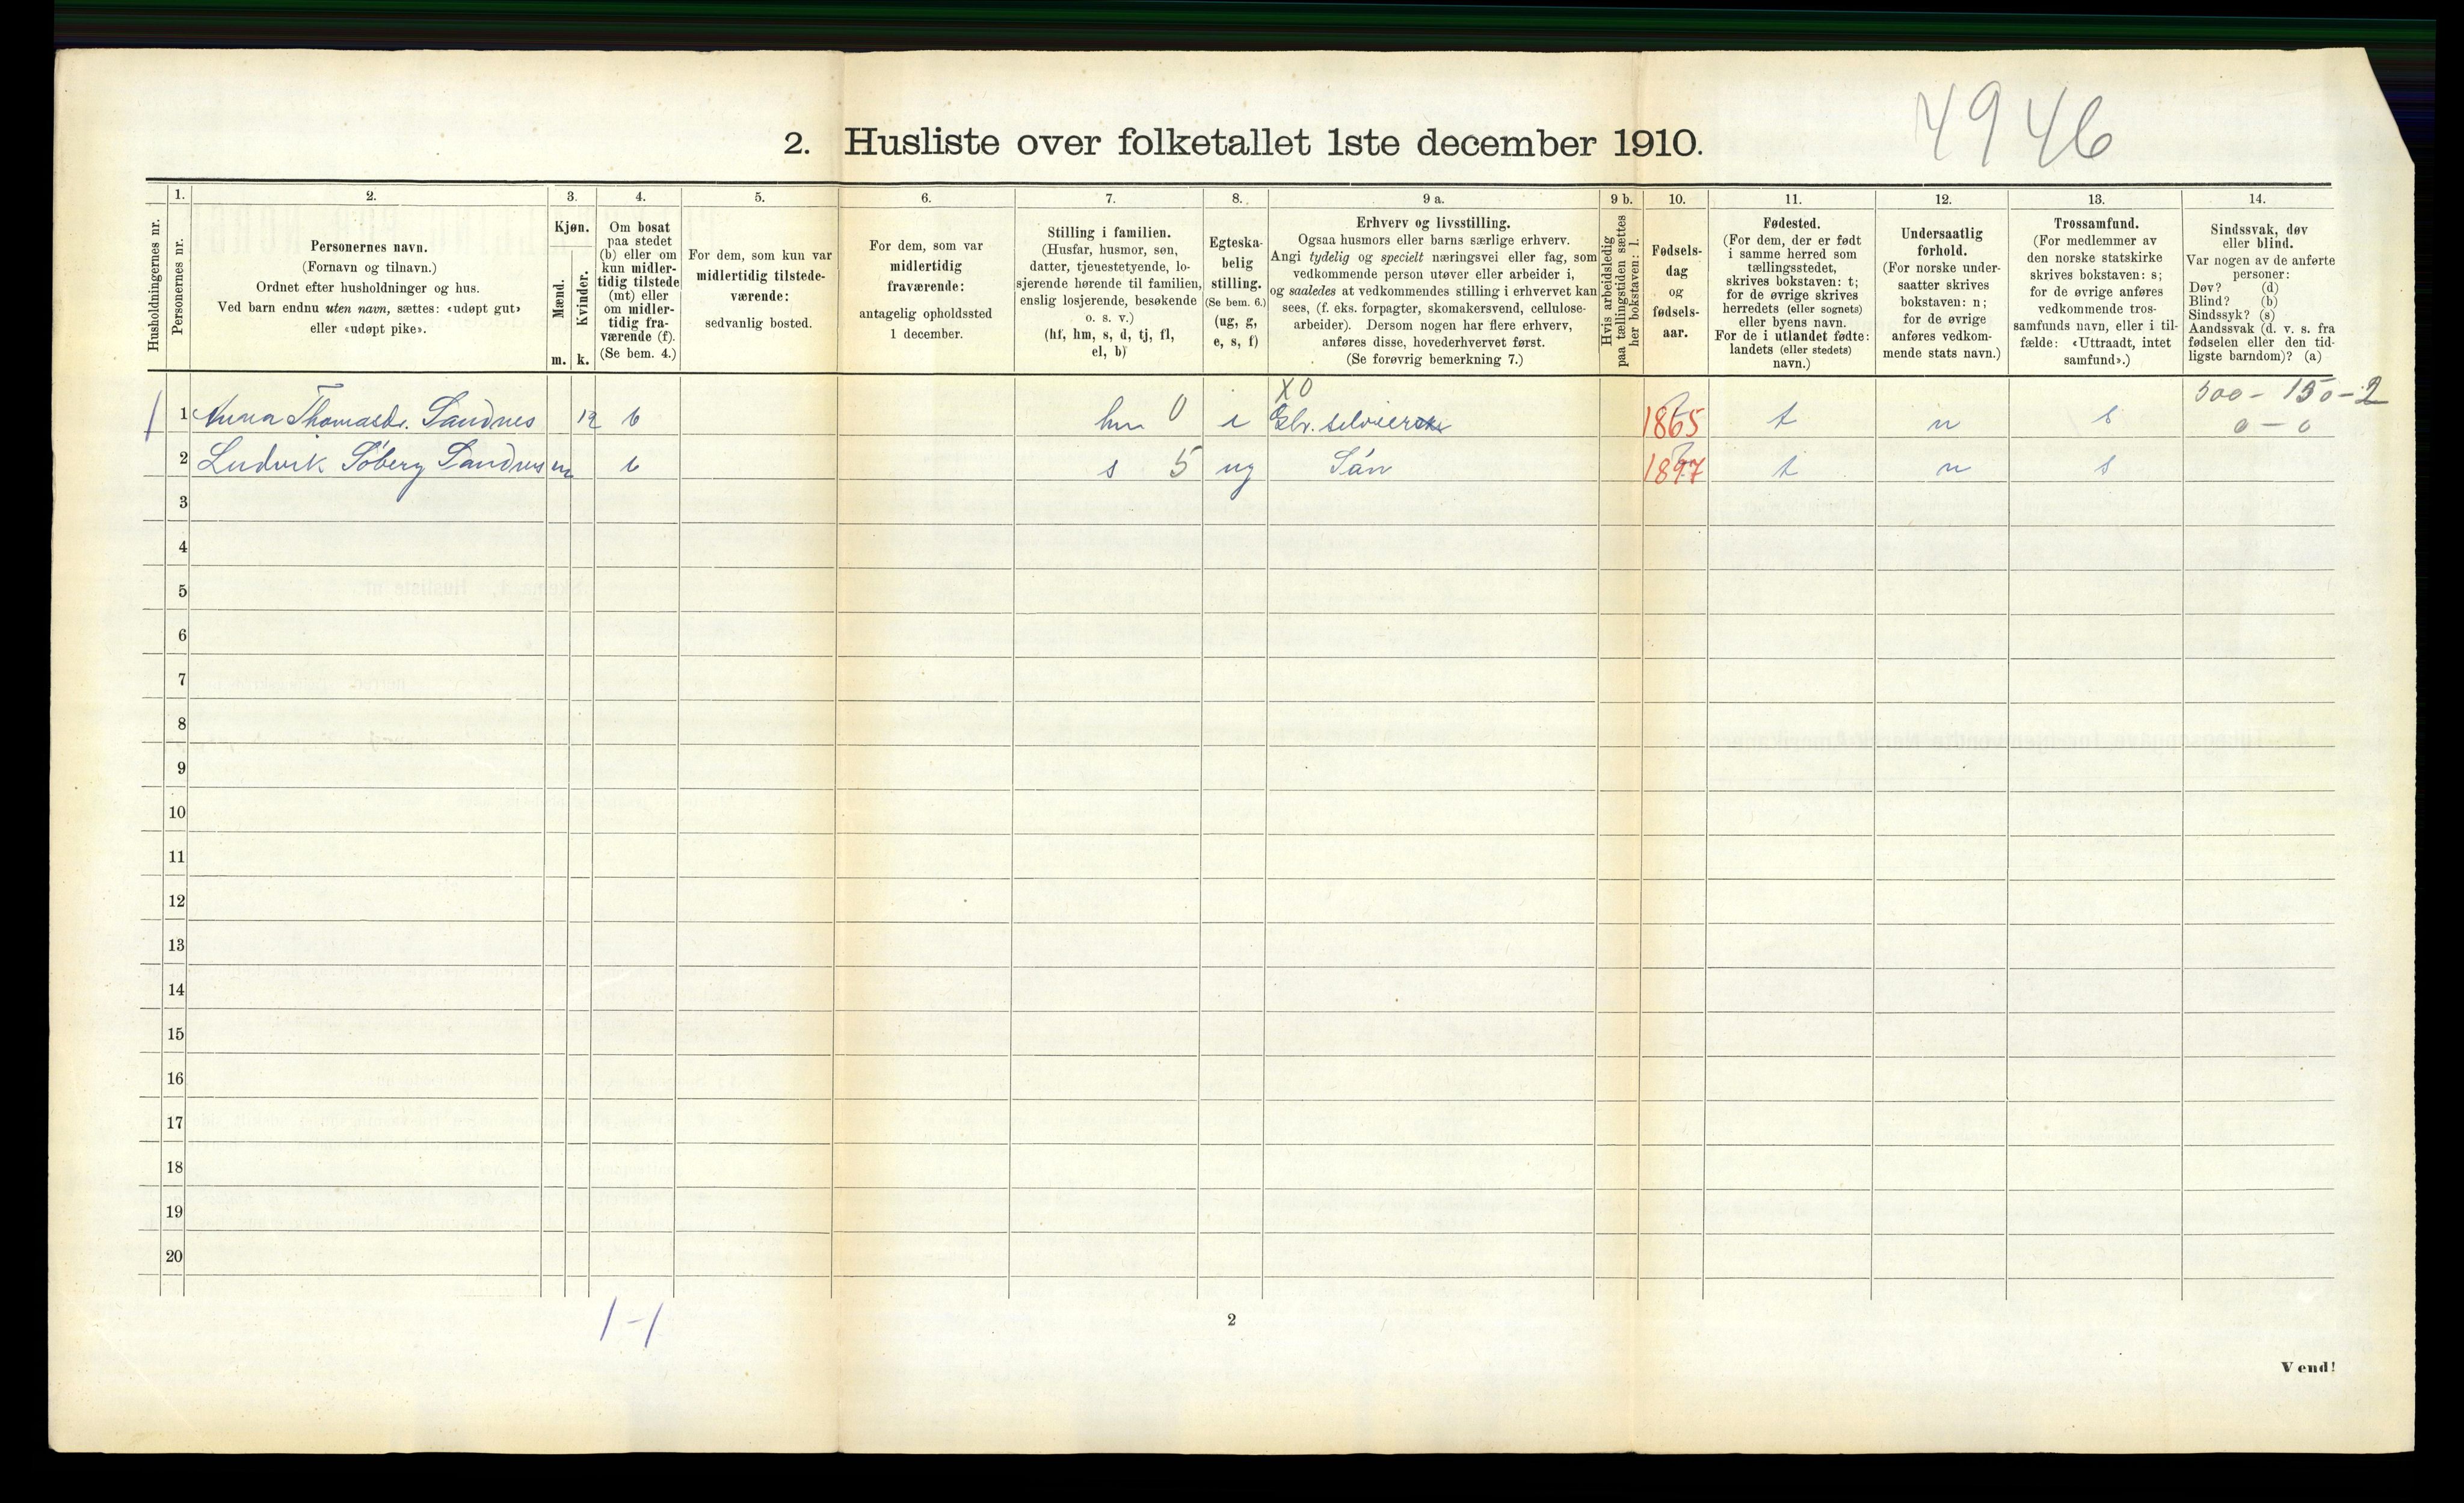 4946
2. Husliste over folketallet 1ste december 1910.
Husholdningernes nr.
1.
Personernes nr.
2.
Personernes navn.
(Fornavn og tilnavn.)
Ordnet efter husholdninger og hus.
Ved barn endnu uten navn, sættes: «udøpt gut»
eller «udøpt pike».
3.
Kjøn.
Mænd.
Kvinder.
m. k.
4.
Om bosat
paa stedet
(b) eller om
kun midler-
tidig tilstede
(mt) eller
om midler-
tidig fra-
værende (f).
(Se bem. 4.)
5.
For dem, som kun var
midlertidig tilstede-
værende:
sedvanlig bosted.
6.
For dem, som var
midlertidig
fraværende:
antagelig opholdssted
1 december.
7.
Stilling i familien.
(Husfar, husmor, søn,
datter, tjenestetyende, lo-
sjerende hørende til familien,
enslig losjerende, besøkende
o. s. v.)
(hf, hm, s, d, tj, fl,
el, b)
8.
Egteska-
belig
stilling.
(Se bem. 6.)
(ug, g,
e, s, f)
9 a.
Erhverv og livsstilling.
Ogsaa husmors eller barns særlige erhverv.
Angi tydelig og specielt næringsvei eller fag, som
vedkommende person utøver eller arbeider i,
og saaledes at vedkommendes stilling i erhvervet kan
sees, (f. eks. forpagter, skomakersvend, cellulose-
arbeider). Dersom nogen har flere erhverv,
anføres disse, hovederhvervet først.
(Se forøvrig bemerkning 7.)
9 b.
Hvis arbeidsledig
paa tællingstiden sættes
her bokstaven: l.
10.
Fødsels-
dag
og
fødsels-
aar.
11.
Fødested.
(For dem, der er født
i samme herred som
tællingsstedet,
skrives bokstaven: t;
for de øvrige skrives
herredets (eller sognets)
eller byens navn.
For de i utlandet fødte:
landets (eller stedets)
navn.)
12.
Undersaatlig
forhold.
(For norske under-
saatter skrives
bokstaven: n;
for de øvrige
anføres vedkom-
mende stats navn.)
13.
Trossamfund.
(For medlemmer av
den norske statskirke
skrives bokstaven: s;
for de øvrige anføres
vedkommende tros-
samfunds navn, eller i til-
fælde: «Uttraadt, intet
samfund».)
14.
Sindssvak, døv
eller blind.
Var nogen av de anførte
personer:
Døv? (d)
Blind? (b)
Sindssyk? (s)
Aandssvak (d. v. s. fra
fødselen eller den tid-
ligste barndom)? (a)
X0 500 - 150 - 2
1 1 Anna Thomasdr. Sandnes k b hm 0 e Gbr. selveierske 1865 t n s 0 - 0
2 Ludvik Søberg Sandnes m b s 5 ug Søn 1897 t n s
3
4
5
6
7
8
9
10
11
12
13
14
15
16
17
18
19
20
1-1
2
Vend!